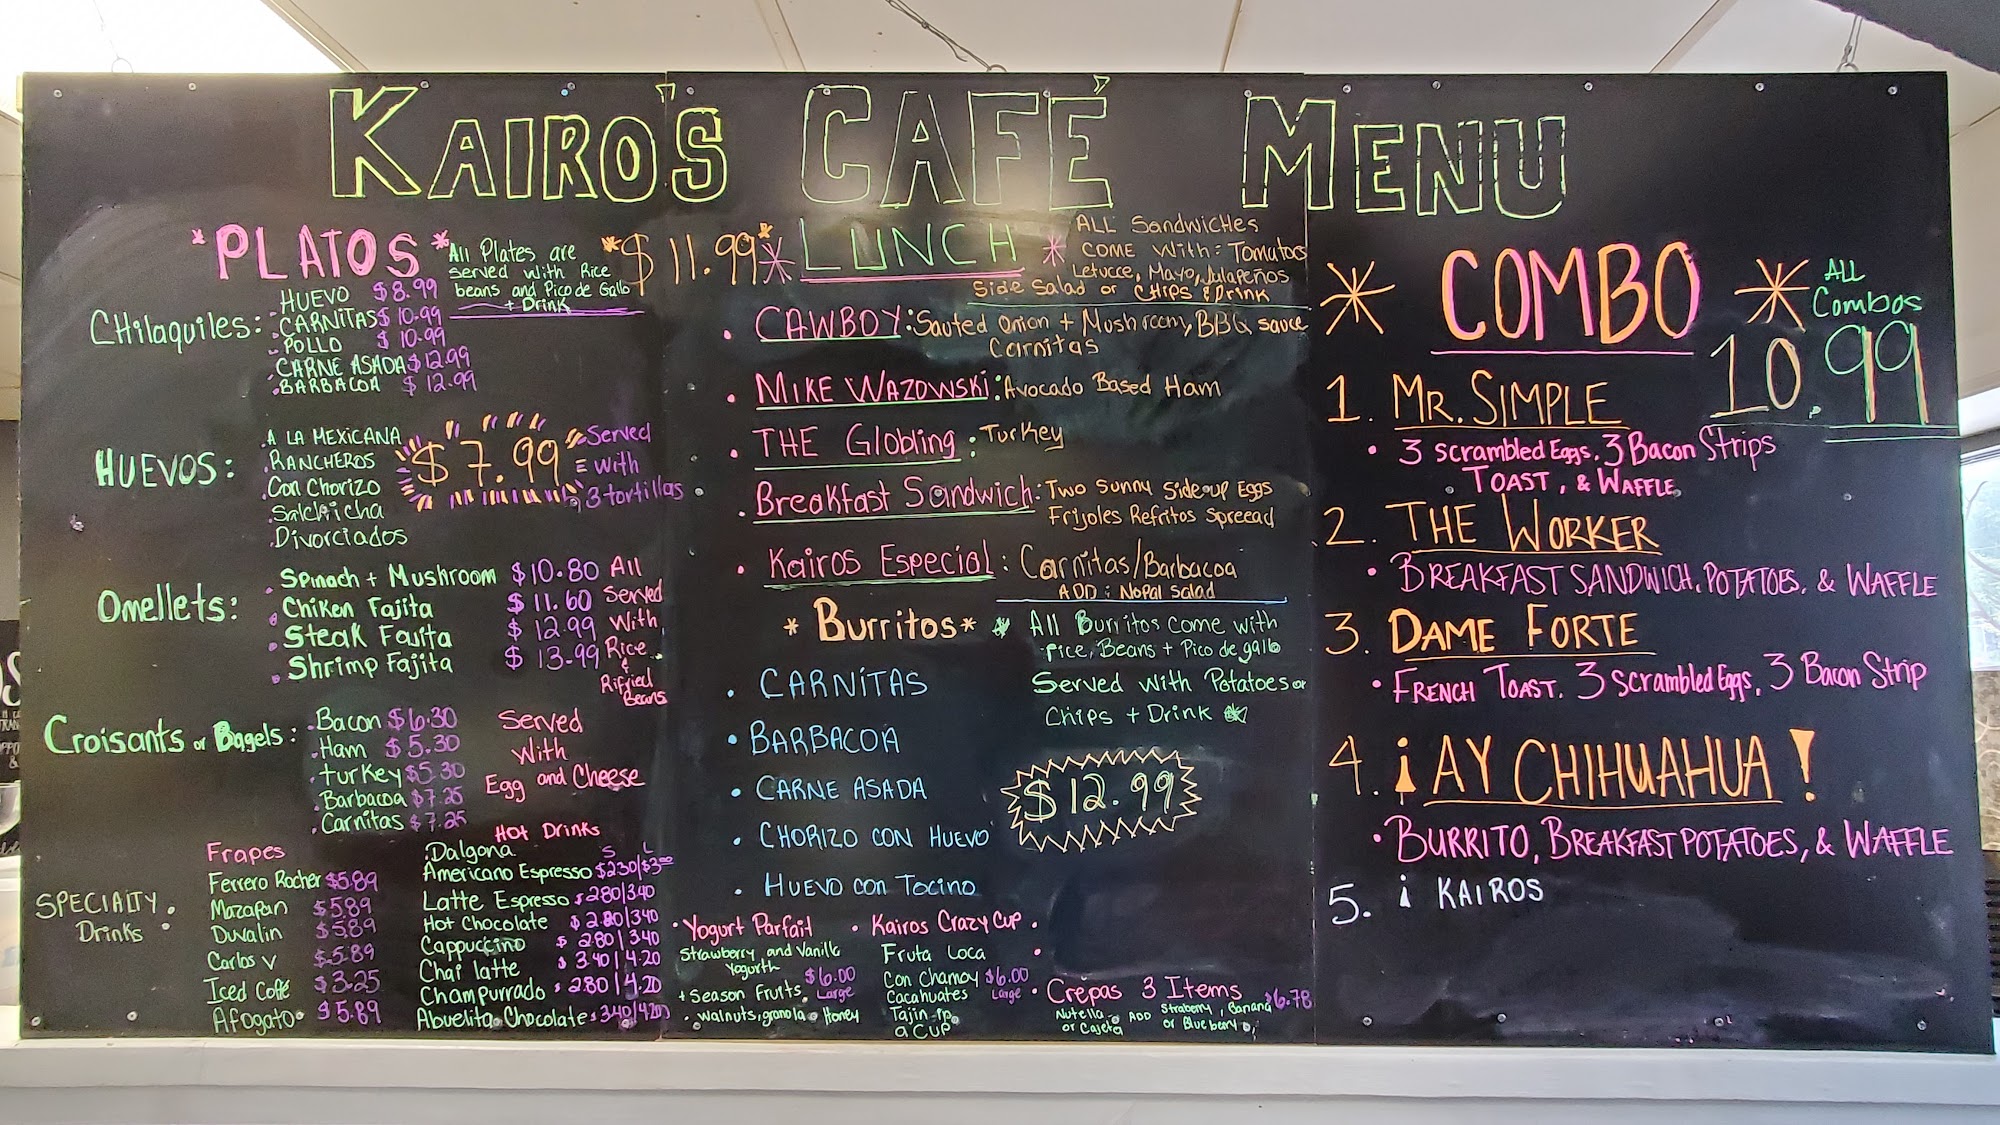 KAIRO'S CAFÉ MENU
*PLATOS*
All Plates are
served with Rice
beans and Pico de Gallo
+ Drink
CHilaquiles:
HUEVO $8.99
CARNITAS $10.99
POLLO $10.99
CARNE ASADA $12.99
BARBACOA $12.99
HUEVOS:
A LA MEXICANA
RANCHEROS
Con Chorizo
Salchicha
Divorciados
$7.99
Served
with
3 tortillas
Omellets:
Spinach + Mushroom $10.80
Chiken Fajita $11.60
Steak Fajita $12.99
Shrimp Fajita $13.99
All
Served
With
Rice
&
Rifried
Beans
Croisants or Bagels:
Bacon $6.30
Ham $5.30
turkey $5.30
Barbacoa $7.25
Carnitas $7.25
Served
With
Egg and Cheese
SPECIALTY
Drinks:
Frapes
Ferrero Rocher $5.89
Mazapan $5.89
Duvalin $5.89
Carlos V $5.89
Iced Coffe $3.25
Afogato $5.89
Hot Drinks
Dalgona S L
Americano Espresso $2.30/$3.00
Latte Espresso $2.80/3.40
Hot Chocolate $2.80/3.40
Cappuccino $2.80/3.40
Chai latte $3.40/4.20
Champurrado $2.80/4.20
Abuelita Chocolate $3.40/4.20
*$11.99*
*LUNCH*
ALL SandwicHes
COME With: Tomatoes
Letucce, Mayo, Jalapeños
Side Salad or CHips & Drink
CAWBOY: Sauted Onion + Mushroom, BBQ sauce
Carnitas
MIKE WAZOWSKI: Avocado Based Ham
THE Globling: Turkey
Breakfast Sandwich: Two Sunny Side up Eggs
Frijoles Refritos Spreead
Kairos Especial: Carnitas/Barbacoa
ADD: Nopal Salad
*Burritos*
All Burritos come with
rice, Beans + Pico de gallo
Served with Potatoes or
Chips + Drink
CARNITAS
BARBACOA
CARNE ASADA
CHORIZO CON HUEVO
HUEVO con Tocino
$12.99
Yogurt Parfait
Strawberry and Vanilla
Yogurth
+ Season Fruits
Walnuts, granola Honey
$6.00
Large
Kairos Crazy Cup
Fruta Loca
Con Chamoy
Cacahuates
Tajin in
a Cup
$6.00
Large
Crepas 3 Items $6.78
Nutella ADD Straberry, Banana
or Cajeta or Blueberry
* COMBO *
ALL
Combos
10.99
1. MR. SIMPLE
3 scrambled Eggs. 3 Bacon Strips
TOAST, & WAFFLE
2. THE WORKER
BREAKFAST SANDWICH, POTATOES, & WAFFLE
3. DAME FORTE
FRENCH TOAST. 3 scrambled Eggs, 3 Bacon Strip
4. ¡AY CHIHUAHUA!
BURRITO, BREAKFAST POTATOES, & WAFFLE
5. ¡ KAIROS